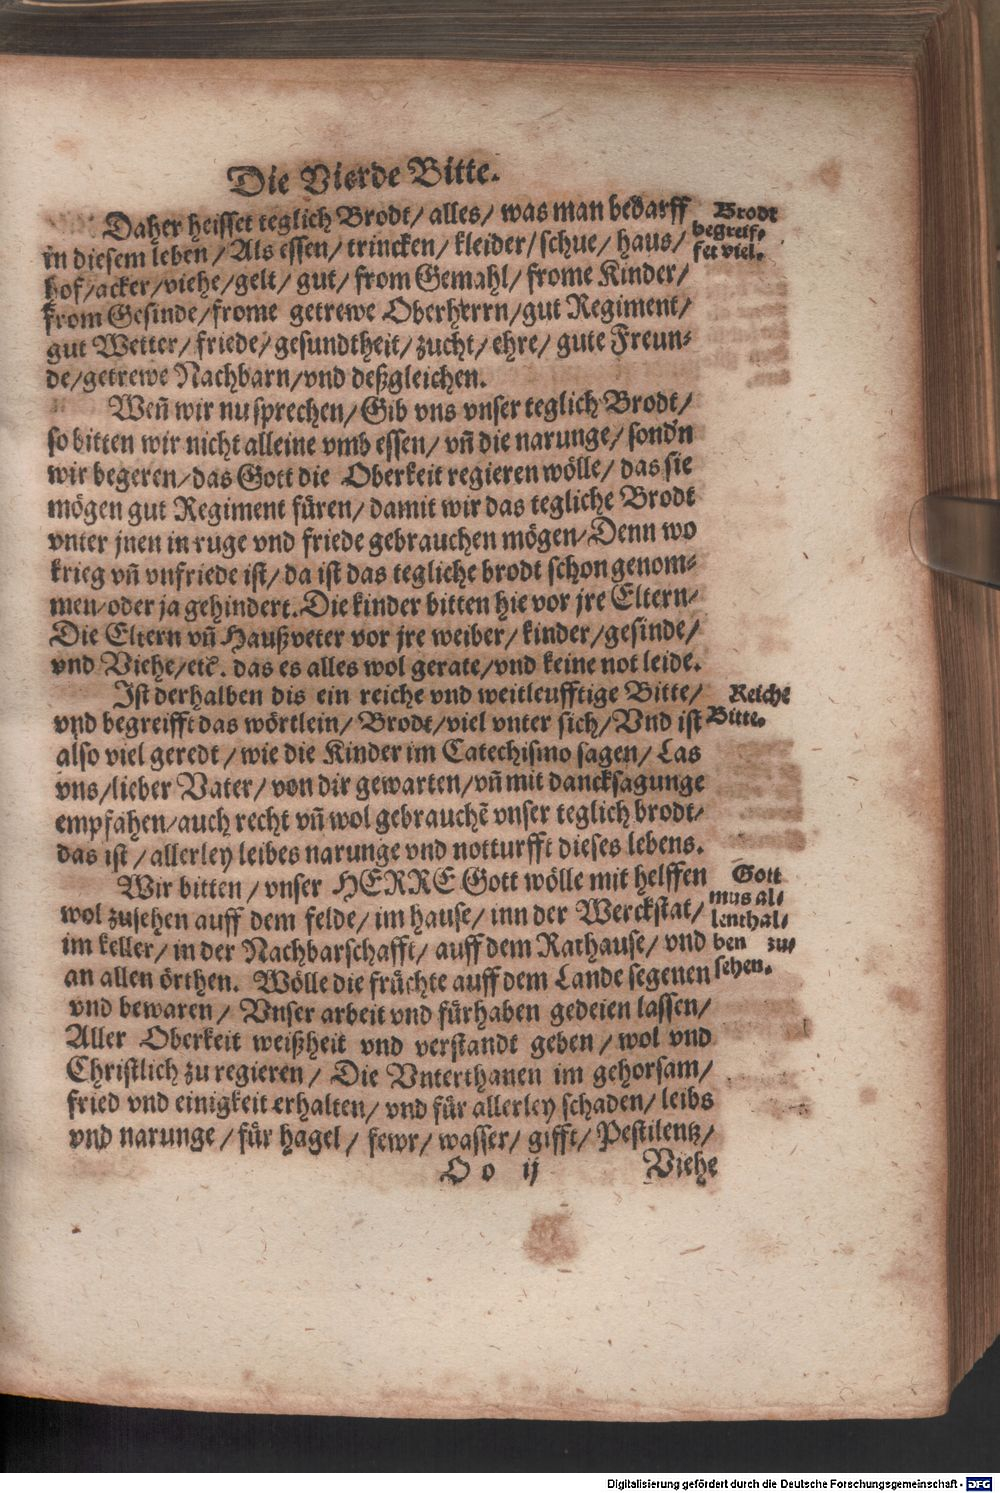 Die Vierde Bitte.
Daher heisset teglich Brodt/ alles/ was man bedarff
in diesem leben/ Als essen/ trincken/ kleider/ schue/ haus/
hof/ acker/ viehe/ gelt/ gut/ from Gemahl/ frome Kinder/
from Gesinde/ frome getrewe Oberherrn/ gut Regiment/
gut Wetter/ friede/ gesundtheit/ zucht/ ehre/ gute Freun-
de/ getrewe Nachbarn/ vnd deßgleichen.
Brodt
begreif-
fet viel.
Weñ wir nu sprechen/ Gib vns vnser teglich Brodt/
so bitten wir nicht alleine vmb essen/ vñ die narunge/ sond'n
wir begeren/ das Gott die Oberkeit regieren wölle/ das sie
mögen gut Regiment füren/ damit wir das tegliche Brodt
vnter jnen in ruge vnd friede gebrauchen mögen/ Denn wo
krieg vñ vnfriede ist/ da ist das tegliche brodt schon genom-
men/ oder ja gehindert. Die kinder bitten hie vor jre Eltern/
Die Eltern vñ Haußveter vor jre weiber/ kinder/ gesinde/
vnd Viehe/ etc. das es alles wol gerate/ vnd keine not leide.
Ist derhalben dis ein reiche vnd weitleufftige Bitte/
vnd begreifft das wörtlein/ Brodt/ viel vnter sich/ Vnd ist
also viel geredt/ wie die Kinder im Catechismo sagen/ Las
vns/ lieber Vater/ von dir gewarten/ vñ mit dancksagunge
empfahen/ auch recht vñ wol gebrauchẽ vnser teglich brodt/
das ist/ allerley leibes narunge vnd notturfft dieses lebens.
Reiche
Bitte.
Wir bitten/ vnser HERRE Gott wölle mit helffen
wol zusehen auff dem felde/ im hause/ inn der Werckstat/
im keller/ in der Nachbarschafft/ auff dem Rathause/ vnd
an allen örthen. Wölle die früchte auff dem Lande segenen
vnd bewaren/ Vnser arbeit vnd fürhaben gedeien lassen/
Aller Oberkeit weißheit vnd verstandt geben/ wol vnd
Christlich zu regieren/ Die Vnterthanen im gehorsam/
fried vnd einigkeit erhalten/ vnd für allerley schaden/ leibs
vnd narunge/ für hagel/ fewr/ wasser/ gifft/ Pestilentz/
Gott
mus al-
lenthal-
ben zu-
sehen.
O o ij
Viehe
Digitalisierung gefördert durch die Deutsche Forschungsgemeinschaft - DFG